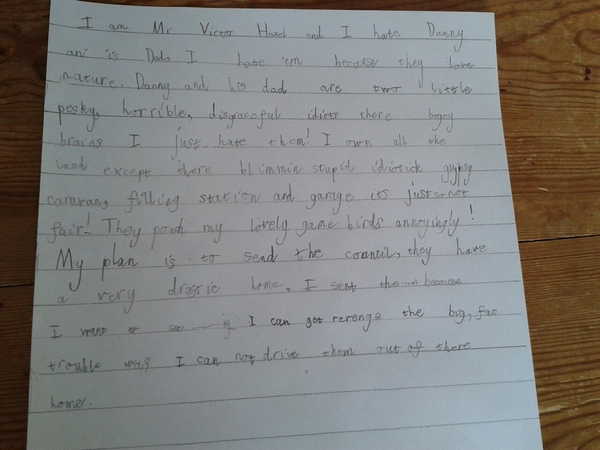 I am Mr Victor Hazel and I hate Danny
an' is Dad. I hate 'em because they love
nature. Danny and his dad are two little
pesky, horrible, disgraceful idiots there bogey
brains I just hate them! I own all the
land except there blimmin stupid idiotick gypsy
caravan, filling station and garage its just not
fair! They poach my lovely game birds annoyingly!
My plan is to send the council, they have
a very drastic home, I sent the because
I want to see if I can get revenge the big, fat
trouble was I can not drive them out of there
home.